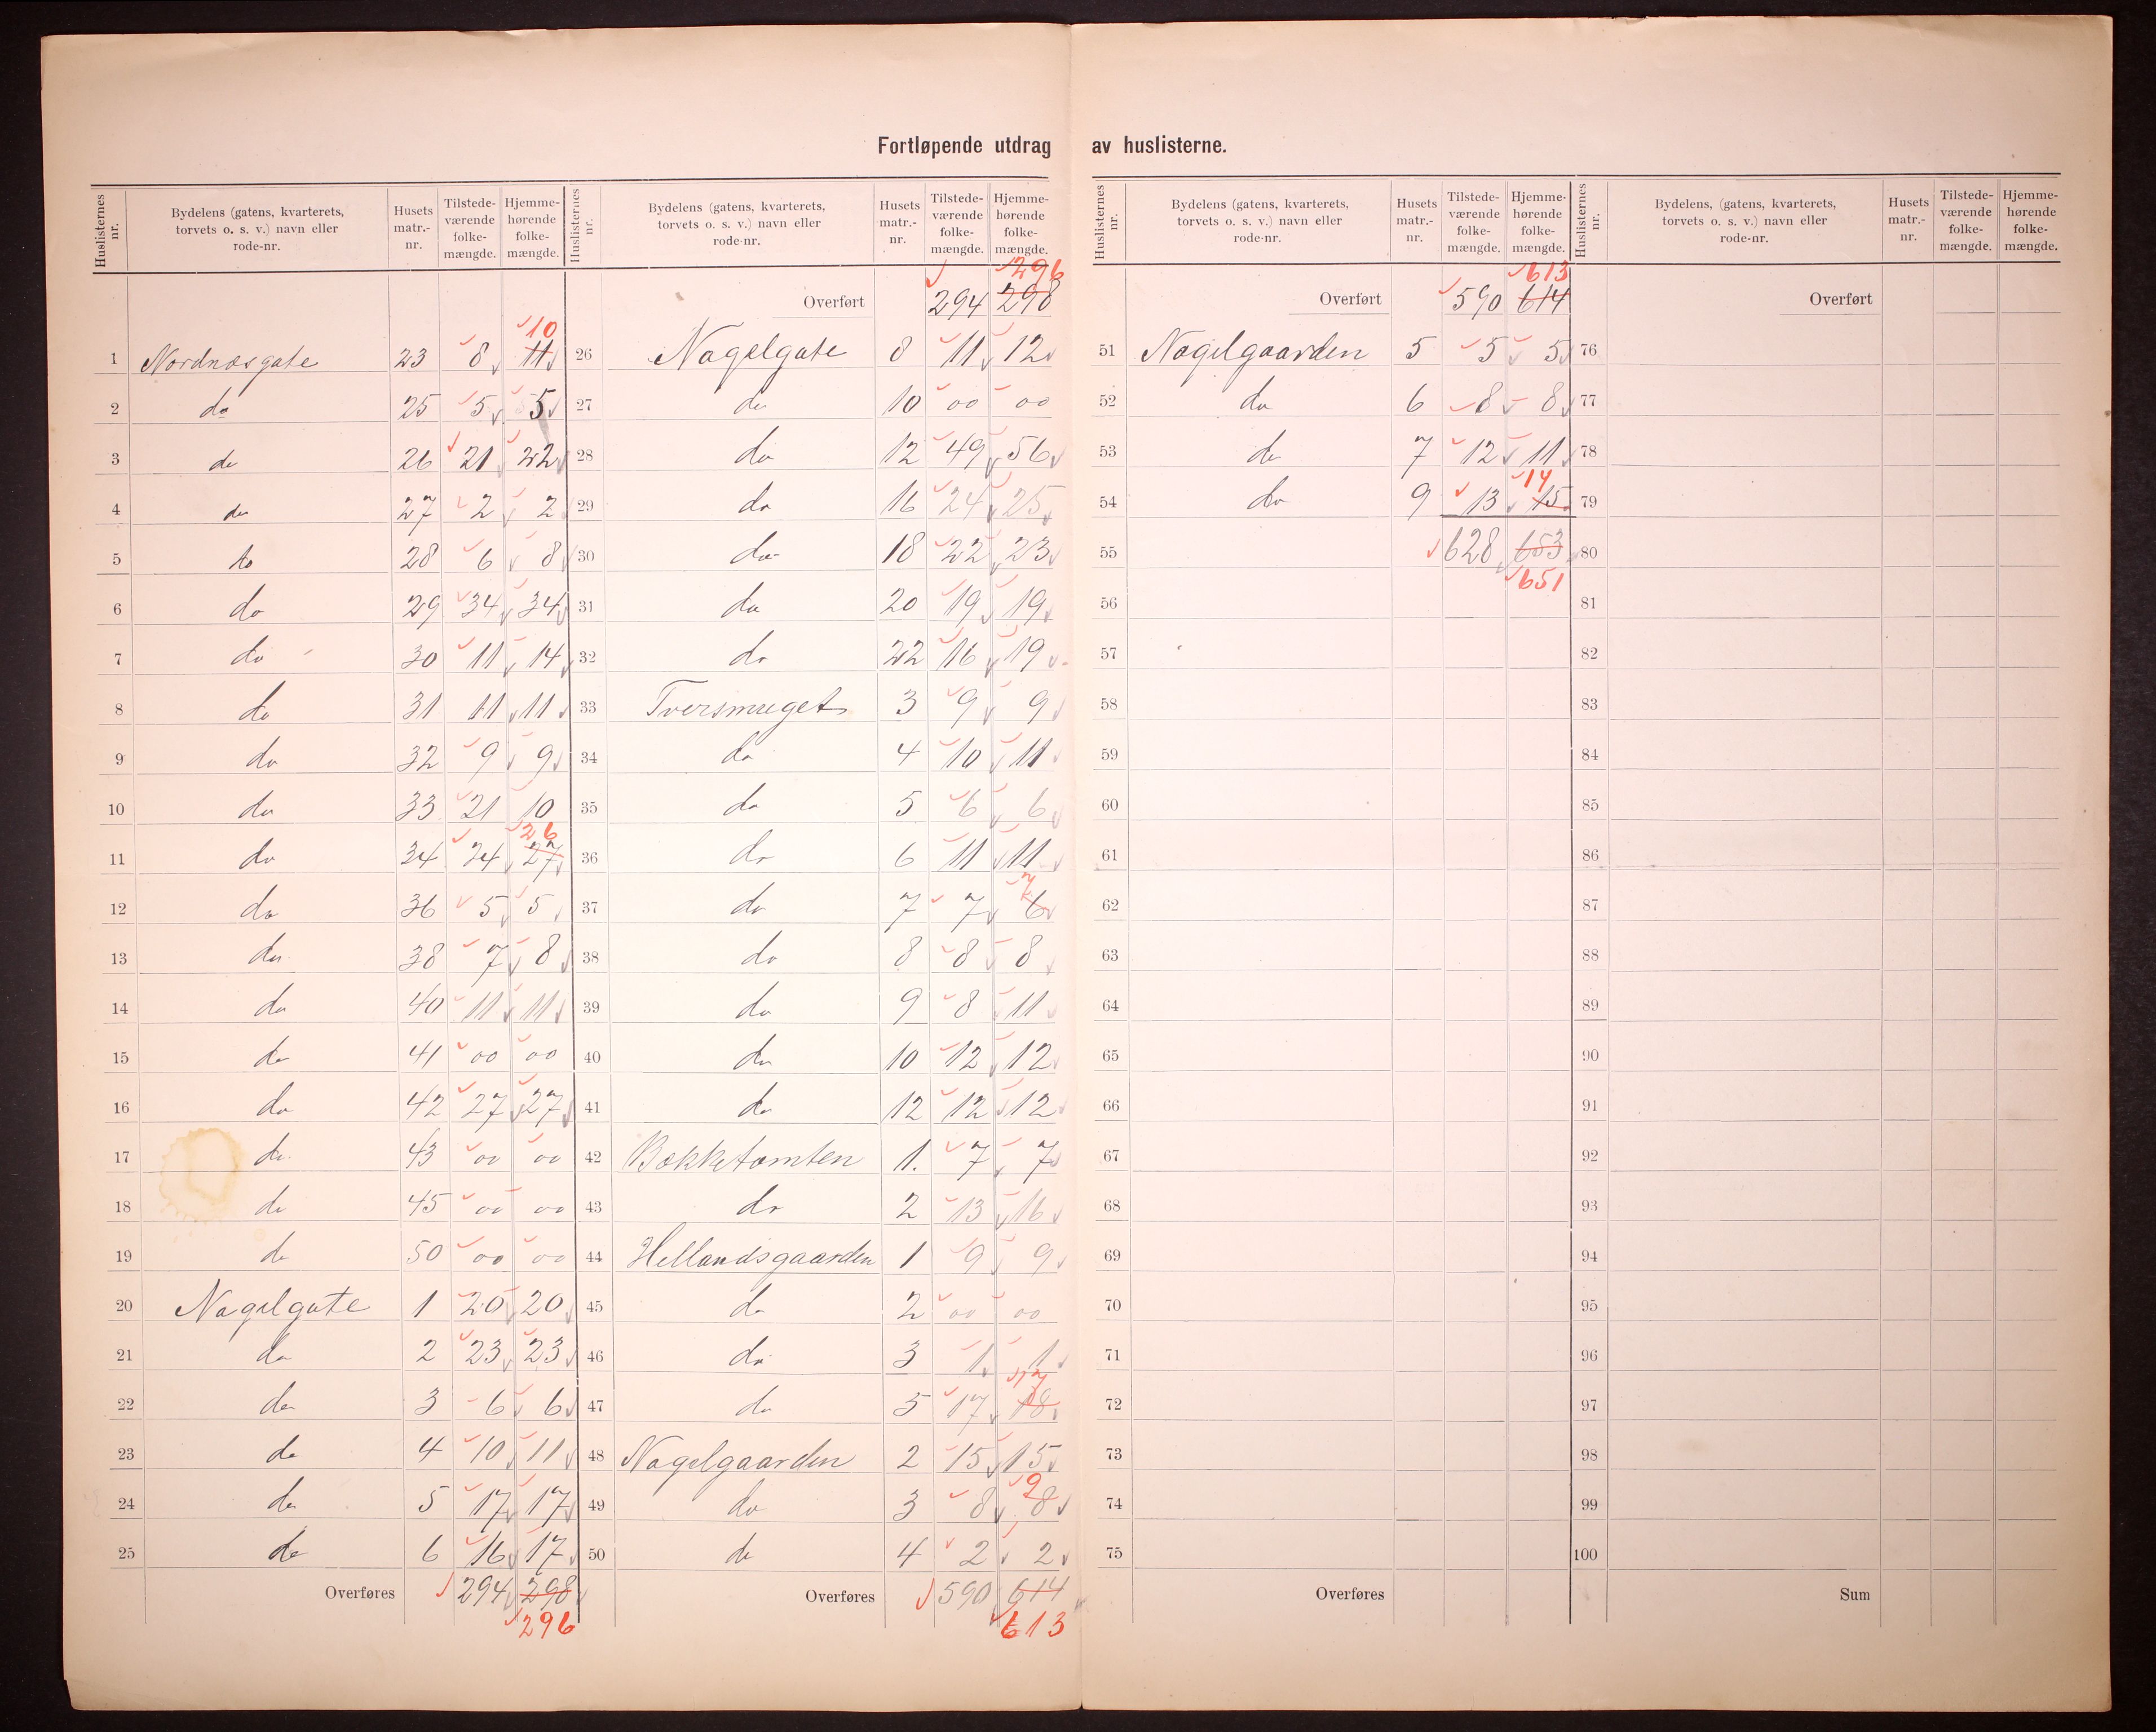 Fortløpende utdrag av huslisterne.
Huslisternes nr. | Bydelens (gatens, kvarterets, torvets o. s. v.) navn eller rode-nr. | Husets matr.-nr. | Tilstede-værende folke-mængde. | Hjemme-hørende folke-mængde.
1 Nordnæsgate 23 8 11 10
2 do 25 5 5
3 do 26 21 22
4 do 27 2 2
5 do 28 6 8
6 do 29 34 34
7 do 30 11 14
8 do 31 11 11
9 do 32 9 9
10 do 33 21 10
11 do 34 24 27 26
12 do 36 5 5
13 do 38 7 8
14 do 40 11 11
15 do 41 00 00
16 do 42 27 27
17 do 43 00 00
18 do 45 00 00
19 do 50 00 00
20 Nagelgate 1 20 20
21 do 2 23 23
22 do 3 6 6
23 do 4 10 11
24 do 5 17 17
25 do 6 16 17
Overføres 294 298
296
Huslisternes nr. | Bydelens (gatens, kvarterets, torvets o. s. v.) navn eller rode-nr. | Husets matr.-nr. | Tilstede-værende folke-mængde. | Hjemme-hørende folke-mængde.
296
Overført 294 298
26 Nagelgate 8 11 12
27 do 10 00 00
28 do 12 49 56
29 do 16 24 25
30 do 18 22 23
31 do 20 19 19
32 do 22 16 19
33 Tversmuget 3 9 9
34 do 4 10 11
35 do 5 6 6
36 do 6 11 11
37 do 7 7 6 7
38 do 8 8 8
39 do 9 8 11
40 do 10 12 12
41 do 12 12 12
42 Bækketomten 1. 7 7
43 do 2 13 16
44 Hellandsgaarden 1 9 9
45 do 2 00 00
46 do 3 1 1
47 do 5 17 18 17
48 Nagelgaarden 2 15 15
49 do 3 8 8 9
50 do 4 2 2
Overføres 590 614
613
Huslisternes nr. | Bydelens (gatens, kvarterets, torvets o. s. v.) navn eller rode-nr. | Husets matr.-nr. | Tilstede-værende folke-mængde. | Hjemme-hørende folke-mængde.
613
Overført 590 614
51 Nagelgaarden 5 5 5
52 do 6 8 8
53 do 7 12 11
54 do 9 13 15 14
55 628 653
651
56
57
58
59
60
61
62
63
64
65
66
67
68
69
70
71
72
73
74
75
Overføres
Huslisternes nr. | Bydelens, (gatens, kvarterets, torvets o. s. v.) navn eller rode-nr. | Husets matr.-nr. | Tilstede-værende folke-mængde. | Hjemme-hørende folke-mængde.
Overført
76
77
78
79
80
81
82
83
84
85
86
87
88
89
90
91
92
93
94
95
96
97
98
99
100
Sum